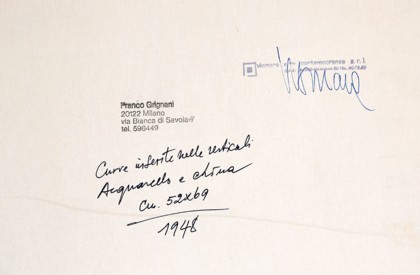 Franco Grignani
20122 Milano
via Bianca di Savoia 7
tel. 596449
Curve inserite nelle verticali
Acquarello e china
cm. 52x69
1948